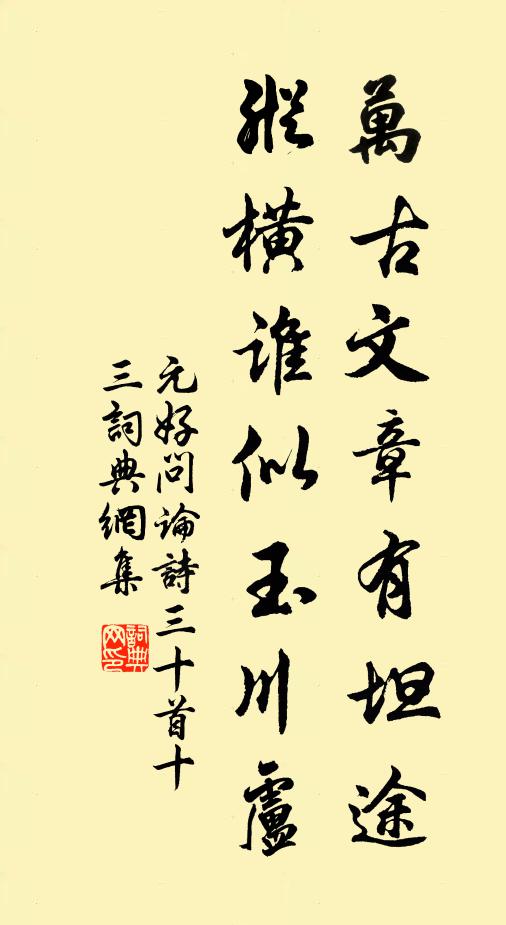 萬古文章有坦途
縱橫誰似玉川盧
元好問論詩三十首十
三詞典網集
詞典網印